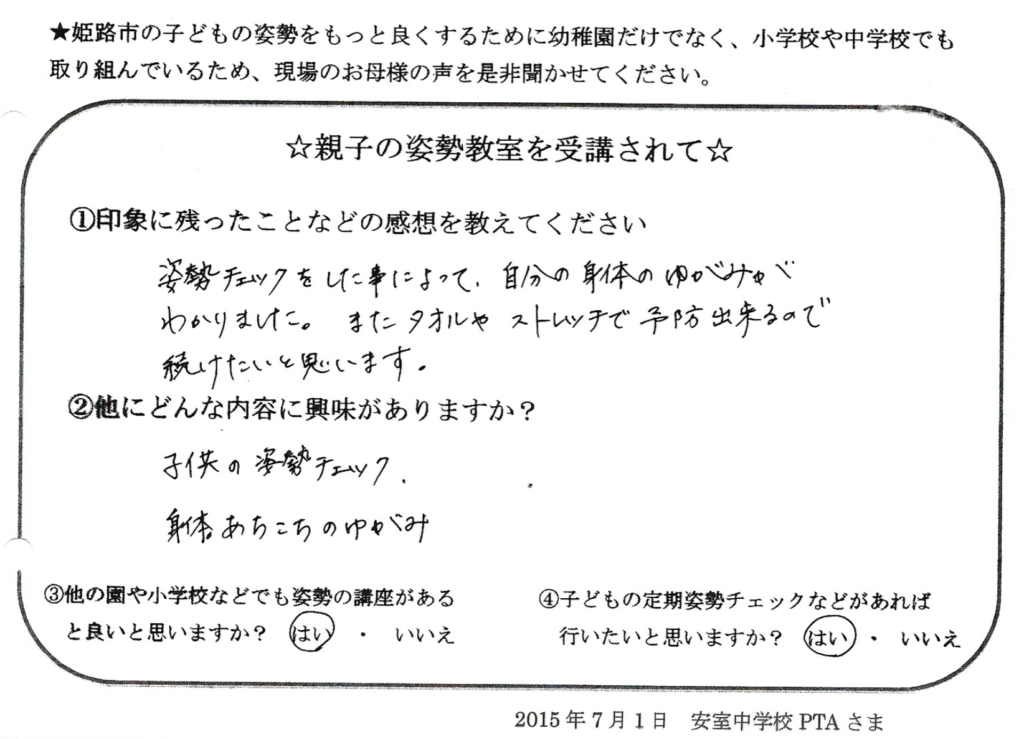 ★姫路市の子どもの姿勢をもっと良くするために幼稚園だけでなく、小学校や中学校でも
取り組んでいるため、現場のお母様の声を是非聞かせてください。
☆親子の姿勢教室を受講されて☆
①印象に残ったことなどの感想を教えてください
姿勢チェックをした事によって、自分の身体のゆがみが
わかりました。またタオルやストレッチで予防出来るので
続けたいと思います。
②他にどんな内容に興味がありますか？
子供の姿勢チェック、
身体あちこちのゆがみ
③他の園や小学校などでも姿勢の講座がある
と良いと思いますか？ はい ・ いいえ
④子どもの定期姿勢チェックなどがあれば
行いたいと思いますか？ はい ・ いいえ
2015年7月1日 安室中学校PTAさま